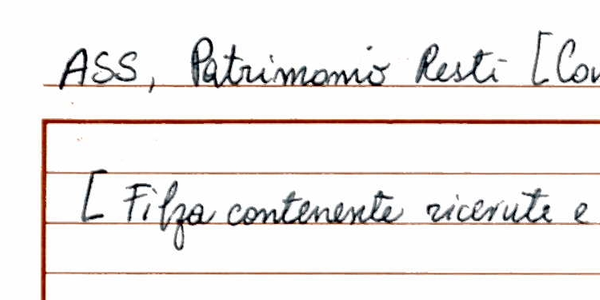 ASS, Patrimonio Resti [Con
[ Filza contenente ricevute e